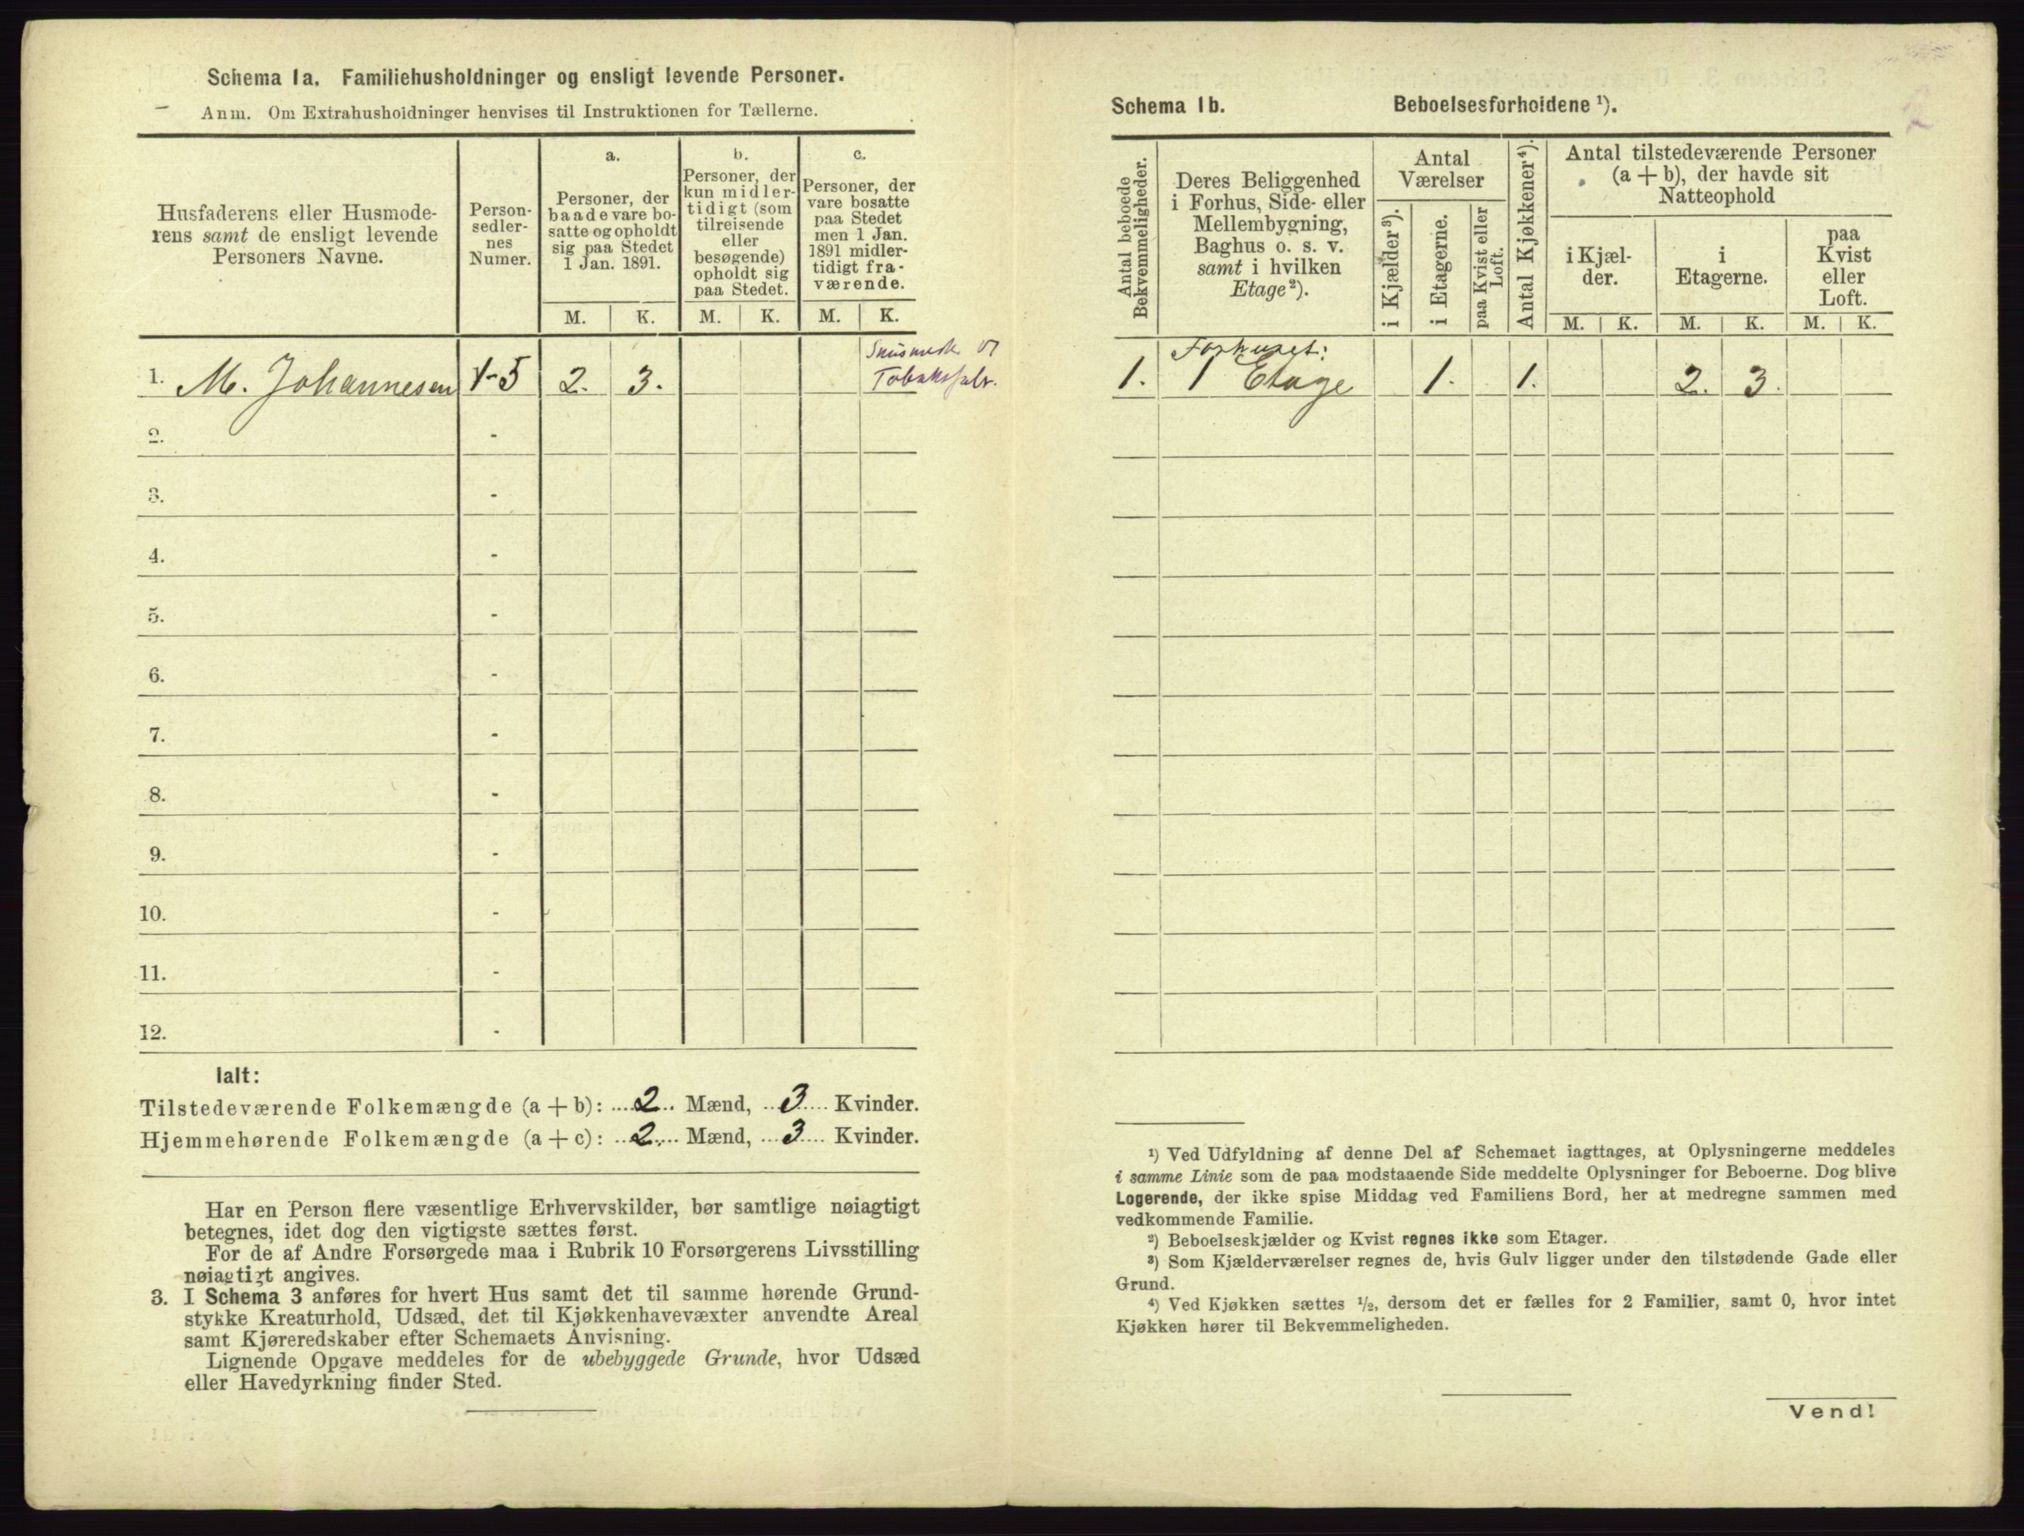 Schema 1a. Familiehusholdninger og ensligt levende Personer.
Anm. Om Extrahusholdninger henvises til Instruktionen for Tællerne.
Husfaderens eller Husmode-
rens samt de ensligt levende
Personers Navne.
Person-
sedler-
nes
Numer.
a.
Personer, der
baade vare bo-
satte og opholdt
sig paa Stedet
1 Jan. 1891.
b.
Personer, der
kun midler-
tidigt (som
tilreisende
eller
besøgende)
opholdt sig
paa Stedet.
c.
Personer, der
vare bosatte
paa Stedet
men 1 Jan.
1891 midler-
tidigt fra-
værende.
M. K. M. K. M. K.
1. M. Johannesen 1-5 2. 3.
2. -
3. -
4. -
5. -
6. -
7. -
8. -
9. -
10. -
11. -
12. -
Ialt:
Tilstedeværende Folkemængde (a + b): 2 Mænd, 3 Kvinder.
Hjemmehørende Folkemængde (a + c): 2 Mænd, 3 Kvinder.
Har en Person flere væsentlige Erhvervskilder, bør samtlige nøiagtigt
betegnes, idet dog den vigtigste sættes først.
For de af Andre Forsørgede maa i Rubrik 10 Forsørgerens Livsstilling
nøiagtigt angives.
3. I Schema 3 anføres for hvert Hus samt det til samme hørende Grund-
stykke Kreaturhold, Udsæd, det til Kjøkkenhavevæxter anvendte Areal
samt Kjøreredskaber efter Schemaets Anvisning.
Lignende Opgave meddeles for de ubebyggede Grunde, hvor Udsæd
eller Havedyrkning finder Sted.
Schema 1b. Beboelsesforholdene ¹).
Antal beboede
Bekvemmeligheder.
Deres Beliggenhed
i Forhus, Side- eller
Mellembygning,
Baghus o. s. v.
samt i hvilken
Etage²).
Antal
Værelser
i Kjælder³).
i Etagerne.
paa Kvist eller
Loft.
Antal Kjøkkener⁴).
Antal tilstedeværende Personer
(a + b), der havde sit
Natteophold
i Kjæl-
der.
i
Etagerne.
paa
Kvist
eller
Loft.
M. K. M. K. M. K.
Forhuset:
1. 1 Etage 1. 1. 2. 3.
¹) Ved Udfyldning af denne Del af Schemaet iagttages, at Oplysningerne meddeles
i samme Linie som de paa modstaaende Side meddelte Oplysninger for Beboerne. Dog blive
Logerende, der ikke spise Middag ved Familiens Bord, her at medregne sammen med
vedkommende Familie.
²) Beboelseskjælder og Kvist regnes ikke som Etager.
³) Som Kjælderværelser regnes de, hvis Gulv ligger under den tilstødende Gade eller
Grund.
⁴) Ved Kjøkken sættes ½, dersom det er fælles for 2 Familier, samt 0, hvor intet
Kjøkken hører til Bekvemmeligheden.
Vend!